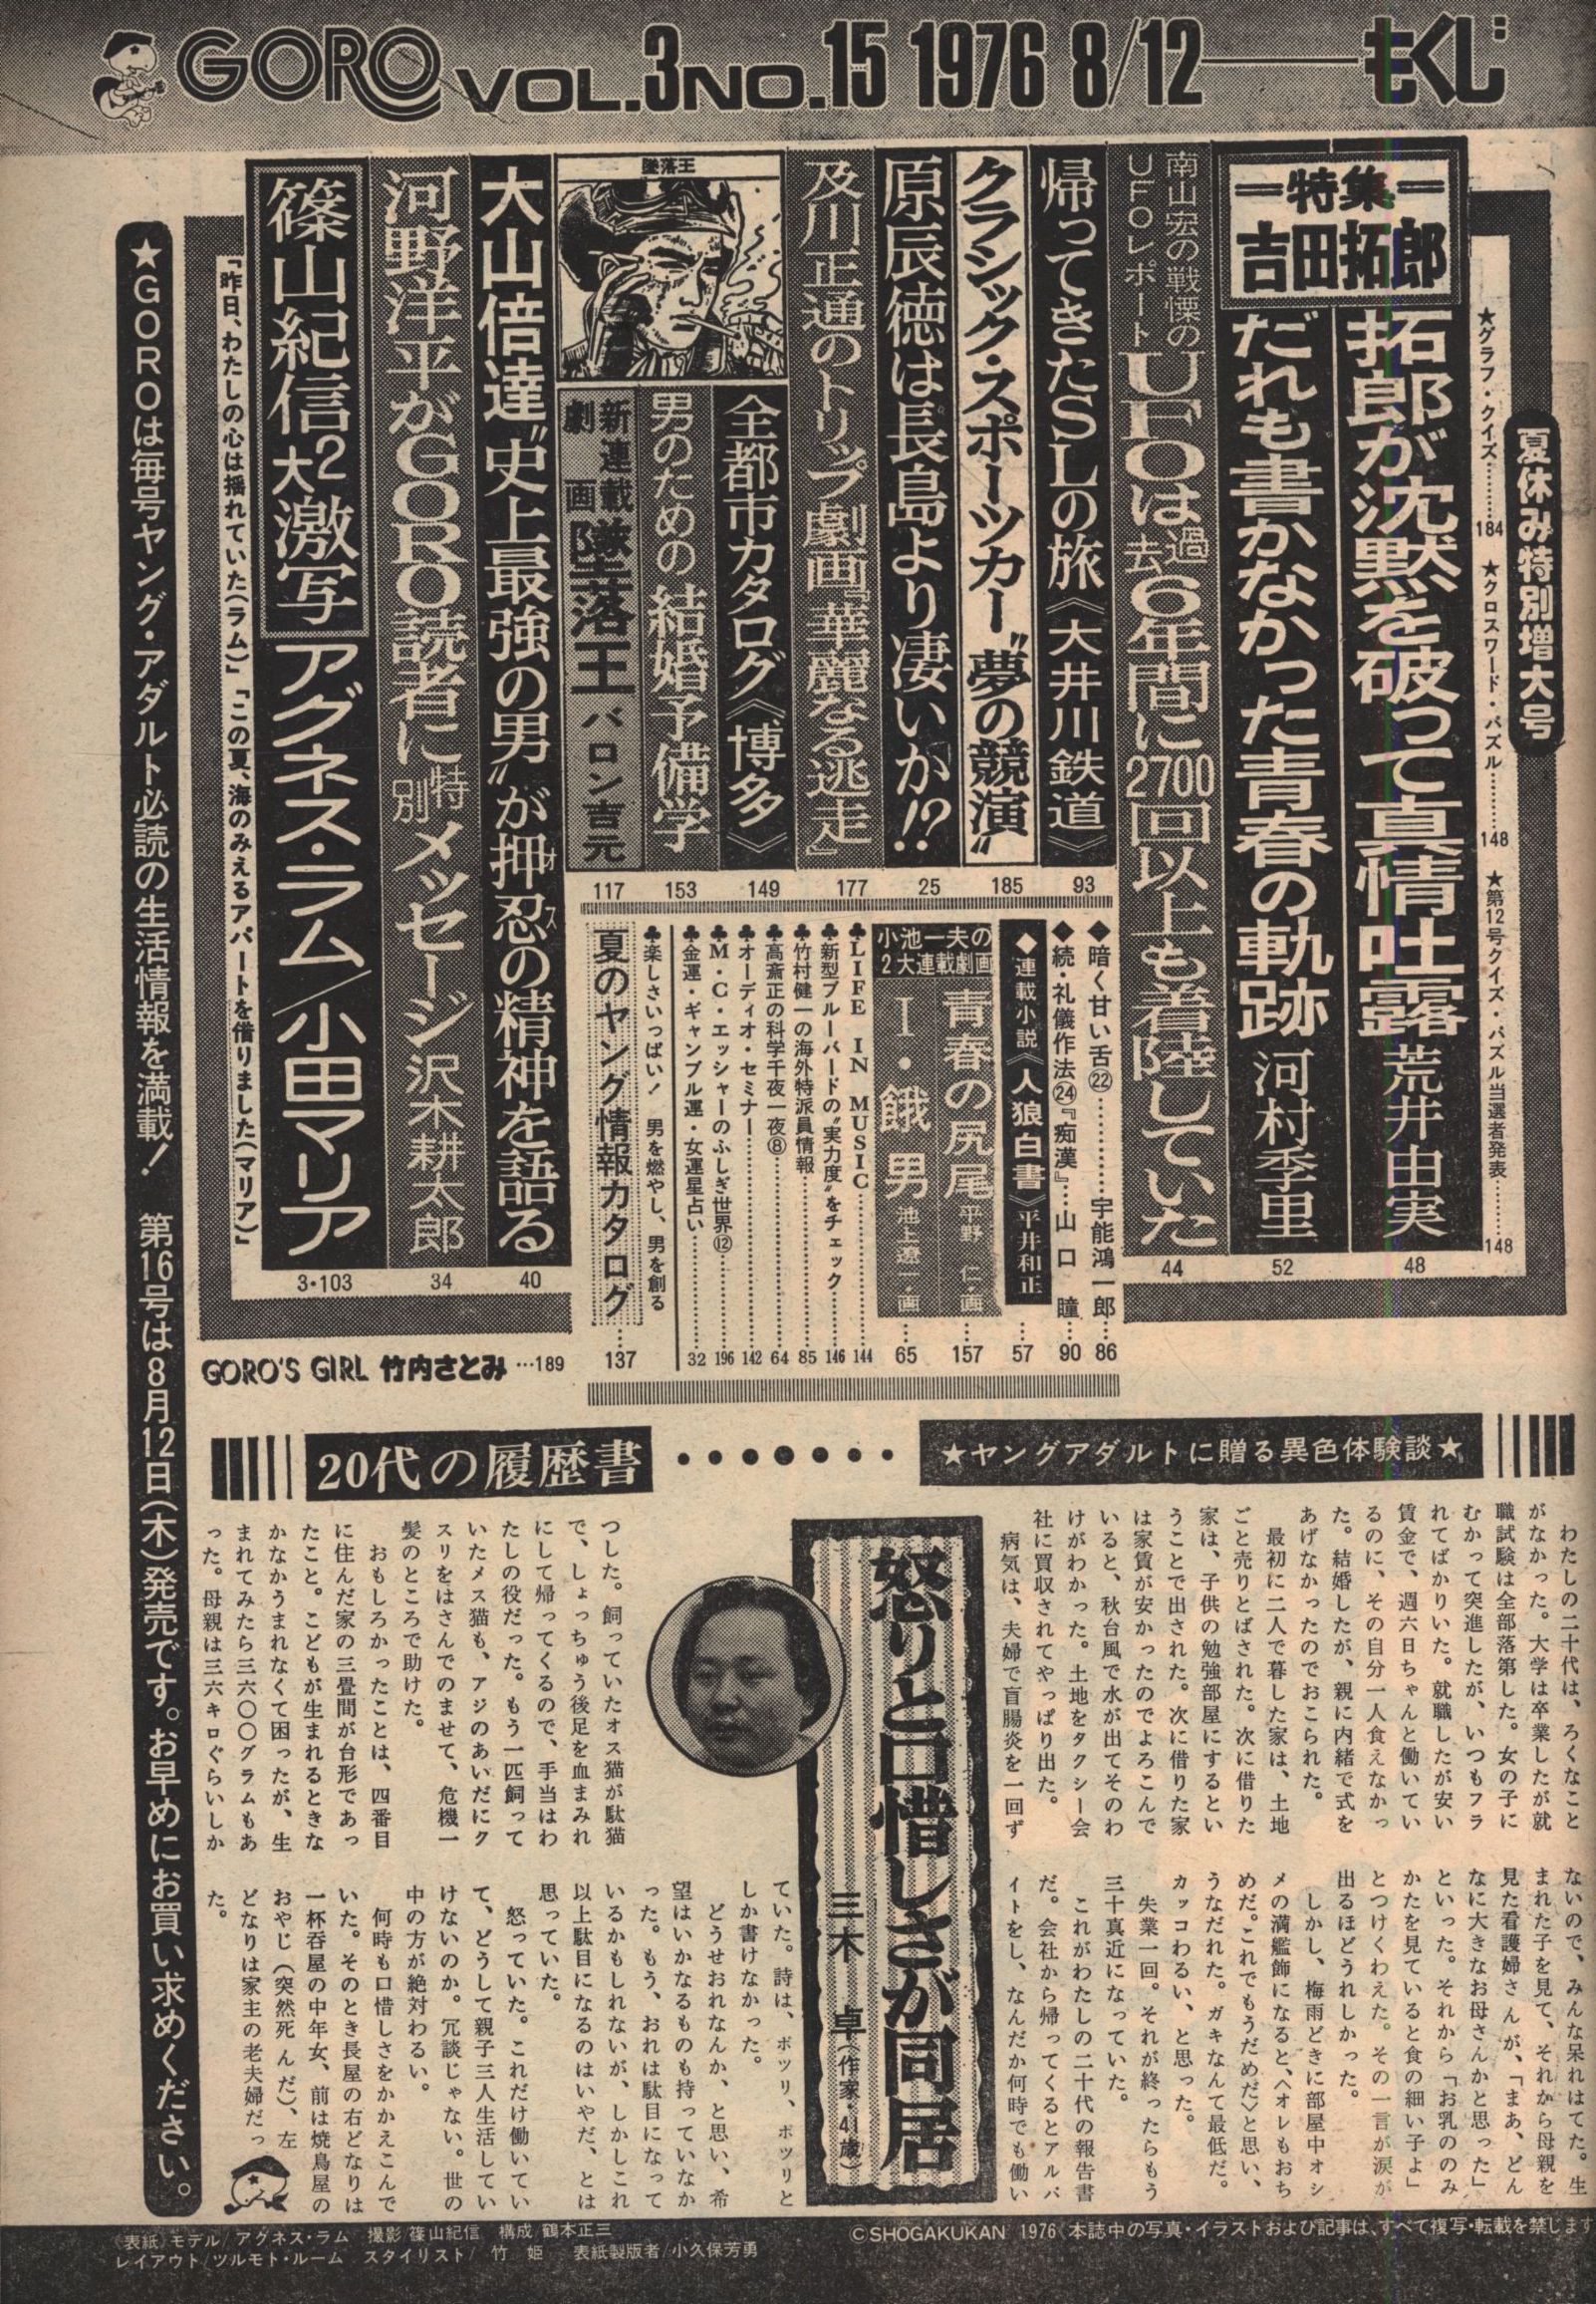 GORO VOL.3 NO.15 1976 8/12 もくじ
夏休み特別増大号
★グラフ・クイズ………184 ★クロスワード・パズル………148 ★第12号クイズ・パズル当選者発表………148
―特集―
吉田拓郎
拓郎が沈黙を破って真情吐露 荒井由実 48
だれも書かなかった青春の軌跡 河村季里 52
南山宏の戦慄のUFOレポート
UFOは過去6年間に2700回以上も着陸していた 44
帰ってきたSLの旅《大井川鉄道》 93
クラシック・スポーツカー“夢の競演” 185
原辰徳は長島より凄いか!? 25
及川正通のトリップ劇画『華麗なる逃走』 177
全都市カタログ《博多》 149
男のための結婚予備学 153
墜落王
新連載劇画 墜落王 バロン吉元 117
大山倍達“史上最強の男”が押忍の精神を語る 40
オス
河野洋平がGORO読者に特別メッセージ 沢木耕太郎 34
篠山紀信2大激写 アグネス・ラム/小田マリア 3・103
「昨日、わたしの心は揺れていた(ラム)」「この夏、海のみえるアパートを借りました(マリア)」
◆暗く甘い舌㉒………宇能鴻一郎…86
◆続・礼儀作法㉔『痴漢』…山口 瞳…90
◆連載小説《人狼白書》平井和正…57
小池一夫の2大連載劇画
青春の尻尾 平野 仁・画…157
I・餓男 池上遼一・画…65
♣LIFE IN MUSIC………144
♣新型ブルーバードの“実力度”をチェック………146
♣竹村健一の海外特派員情報………85
♣高斎正の科学千夜一夜⑧………64
♣オーディオ・セミナー………142
♣M・C・エッシャーのふしぎ世界⑫………196
♣金運・ギャンブル運・女運星占い………32
♣楽しさいっぱい! 男を燃やし、男を創る
夏のヤング情報カタログ…137
GORO'S GIRL 竹内さとみ…189
★GOROは毎号ヤング・アダルト必読の生活情報を満載! 第16号は8月12日(木)発売です。お早めにお買い求めください。
★ヤングアダルトに贈る異色体験談★
20代の履歴書
怒りと口惜しさが同居
三木 卓(作家・41歳)
わたしの二十代は、ろくなこと
がなかった。大学は卒業したが就
職試験は全部落第した。女の子に
むかって突進したが、いつもフラ
れてばかりいた。就職したが安い
賃金で、週六日ちゃんと働いてい
るのに、その自分一人食えなかっ
た。結婚したが、親に内緒で式を
あげなかったのでおこられた。
最初に二人で暮した家は、土地
ごと売りとばされた。次に借りた
家は、子供の勉強部屋にするとい
うことで出された。次に借りた家
は家賃が安かったのでよろこんで
いると、秋台風で水が出てそのわ
けがわかった。土地をタクシー会
社に買収されてやっぱり出た。
病気は、夫婦で盲腸炎を一回ず
つした。飼っていたオス猫が駄猫
で、しょっちゅう後足を血まみれ
にして帰ってくるので、手当はわ
たしの役だった。もう一匹飼って
いたメス猫も、アジのあいだにク
スリをはさんでのませて、危機一
髪のところで助けた。
おもしろかったことは、四番目
に住んだ家の三畳間が台形であっ
たこと。こどもが生まれるときな
かなかうまれなくて困ったが、生
まれてみたら三六〇〇グラムもあ
った。母親は三六キロぐらいしか
ないので、みんな呆れはてた。生
まれた子を見て、それから母親を
見た看護婦さんが、「まあ、どん
なに大きなお母さんかと思った」
といった。それから「お乳ののみ
かたを見ていると食の細い子よ」
とつけくわえた。その一言が涙が
出るほどうれしかった。
しかし、梅雨どきに部屋中オシ
メの満艦飾になると、〈オレもおち
めだ。これでもうだめだ〉と思い、
うなだれた。ガキなんて最低だ。
カッコわるい、と思った。
失業一回。それが終ったらもう
三十真近になっていた。
これがわたしの二十代の報告書
だ。会社から帰ってくるとアルバ
イトをし、なんだか何時でも働い
ていた。詩は、ポツリ、ポツリと
しか書けなかった。
どうせおれなんか、と思い、希
望はいかなるものも持っていなか
った。もう、おれは駄目になって
いるかもしれないが、しかしこれ
以上駄目になるのはいやだ、とは
思っていた。
怒っていた。これだけ働いてい
て、どうして親子三人生活してい
けないのか。冗談じゃない。世の
中の方が絶対わるい。
何時も口惜しさをかかえこんで
いた。そのとき長屋の右どなりは
一杯呑屋の中年女、前は焼鳥屋の
おやじ(突然死んだ)、左
どなりは家主の老夫婦だっ
た。
《表紙》モデル/アグネス・ラム 撮影/篠山紀信 構成/鶴本正三
レイアウト/ツルモト・ルーム スタイリスト/竹 姫 表紙製版者/小久保芳勇
©SHOGAKUKAN 1976《本誌中の写真・イラストおよび記事は、すべて複写・転載を禁じます